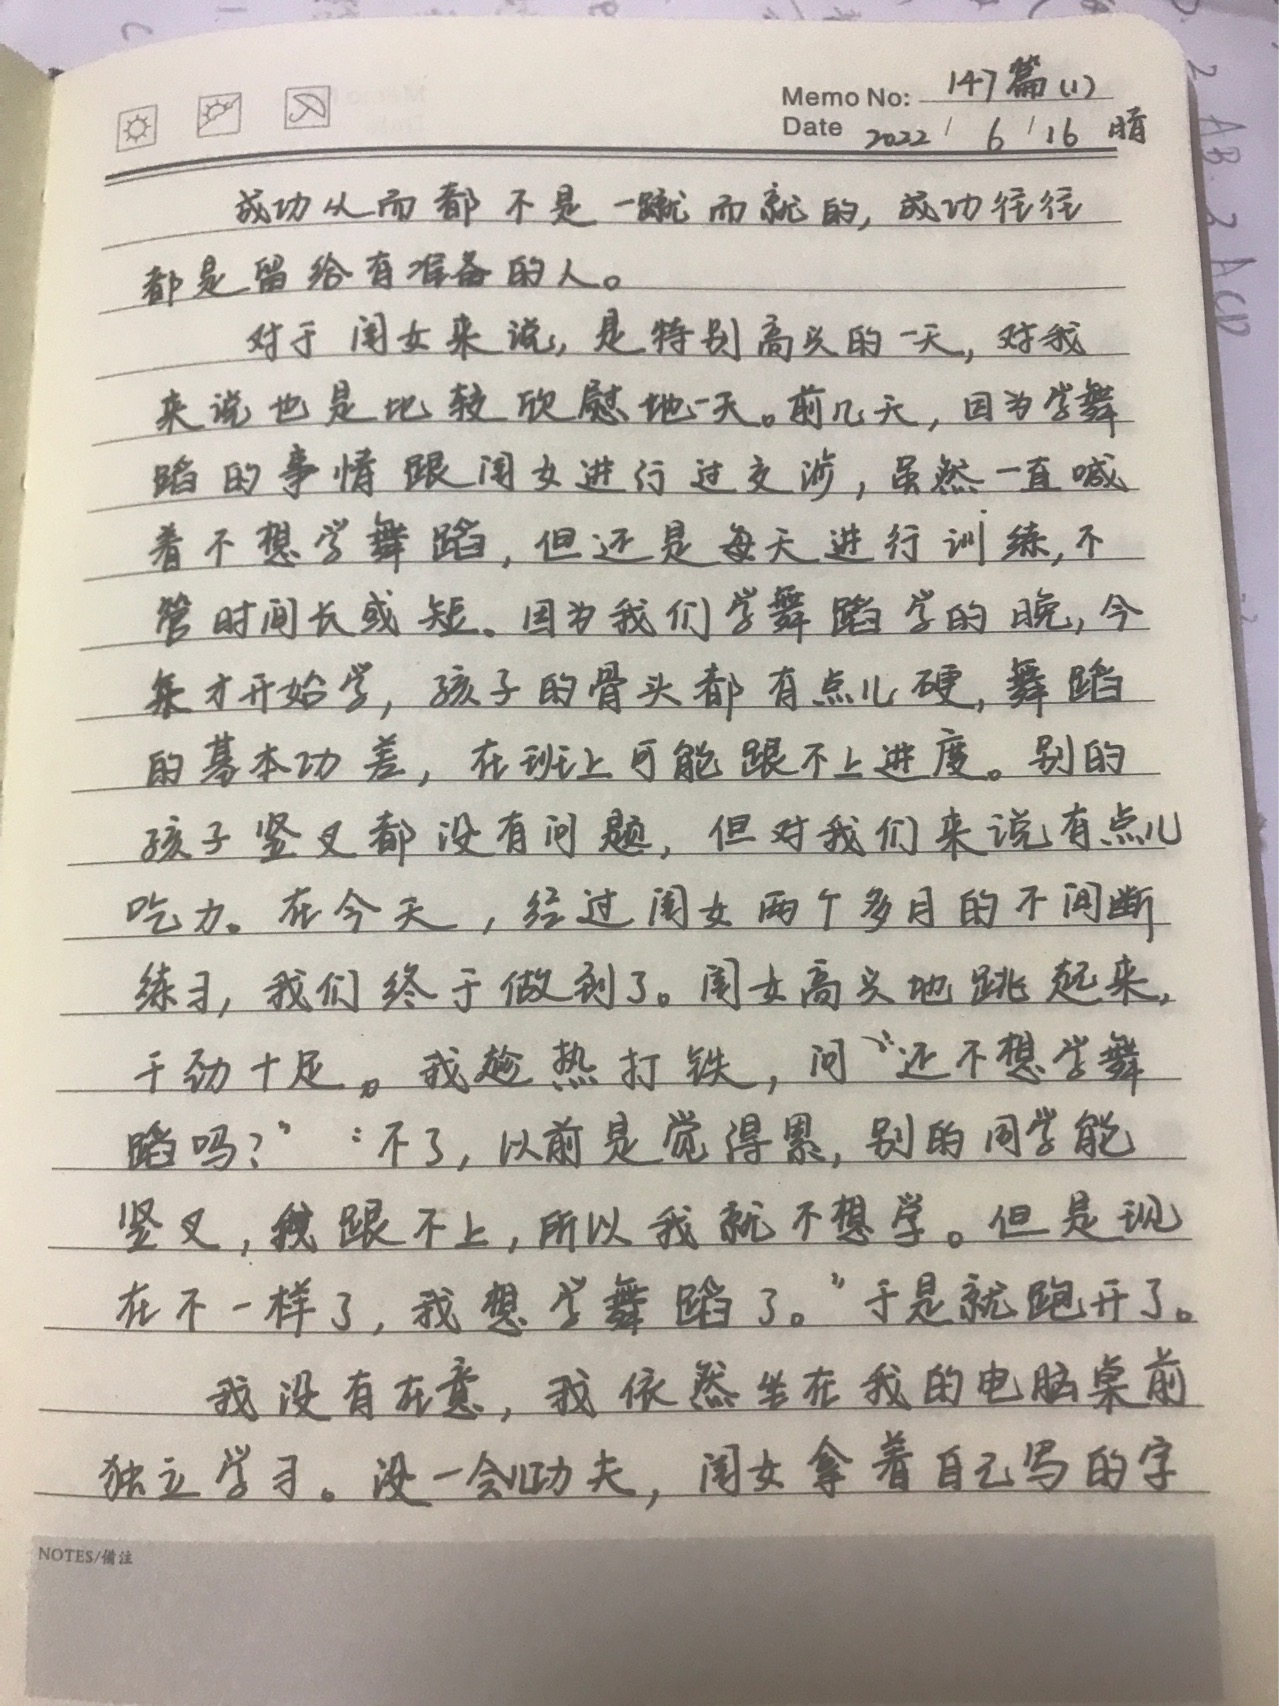 Memo No: 147篇(1)
Date 2022 / 6 / 16 晴
成功从而都不是一蹴而就的,成功往往
都是留给有准备的人。
对于闺女来说,是特别高兴的一天,对我
来说也是比较欣慰地一天。前几天,因为学舞
蹈的事情跟闺女进行过交涉,虽然一直喊
着不想学舞蹈,但还是每天进行训练,不
管时间长或短。因为我们学舞蹈学的晚,今
年才开始学,孩子的骨头都有点儿硬,舞蹈
的基本功差,在班上可能跟不上进度。别的
孩子竖叉都没有问题,但对我们来说有点儿
吃力。在今天,经过闺女两个多月的不间断
练习,我们终于做到了。闺女高兴地跳起来,
干劲十足。我趁热打铁,问“还不想学舞
蹈吗?”“不了,以前是觉得累,别的同学能
竖叉,我跟不上,所以我就不想学。但是现
在不一样了,我想学舞蹈了。”于是就跑开了。
我没有在意,我依然坐在我的电脑桌前
独立学习。没一会儿功夫,闺女拿着自己写的字
NOTES/備注